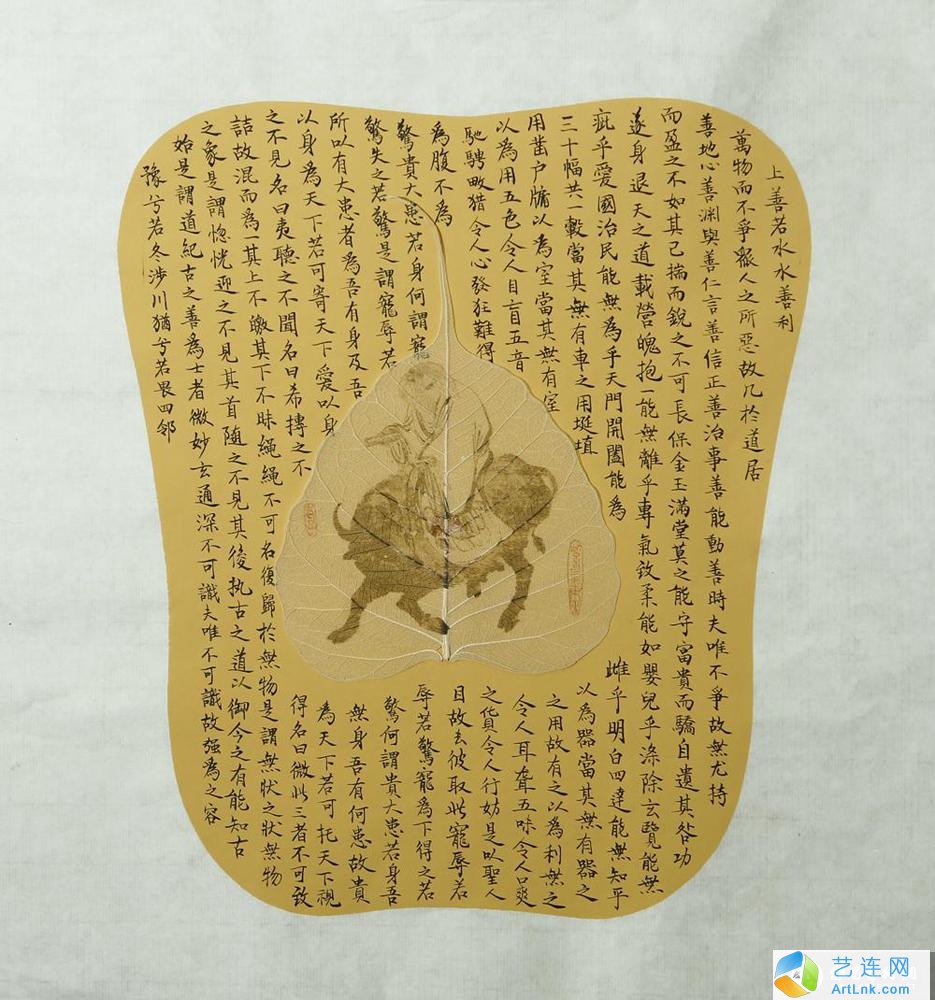 上善若水水善利
萬物而不爭眾人之所惡故几於道居
善地心善渊與善仁言善信正善治事善能動善時夫唯不爭故無尤持
而盈之不如其已揣而銳之不可長保金玉滿堂莫之能守富貴而驕自遺其咎功
遂身退天之道載營魄抱一能無離乎專氣致柔能如嬰兒乎滌除玄覽能無
疵乎愛國治民能無為乎天門開闔能為雌乎明白四達能無知乎
三十幅共一轂當其無有車之用埏埴以為器當其無有器之
用凿户牖以為室當其無有室之用故有之以為利無之
以為用五色令人目盲五音令人耳聋五味令人口爽
馳騁畋猎令人心發狂難得之貨令人行妨是以聖人
為腹不為目故去彼取此寵辱若
驚貴大患若身何謂寵辱若驚寵為下得之若
驚失之若驚是謂寵辱若驚何謂貴大患若身吾
所以有大患者為吾有身及吾無身吾有何患故貴
以身為天下若可寄天下愛以身為天下若可托天下視
之不見名曰夷聽之不聞名曰希摶之不得名曰微此三者不可致
詰故混而為一其上不皦其下不昧繩繩不可名復歸於無物是謂無狀之狀無物
之象是謂惚恍迎之不見其首随之不見其後执古之道以御今之有能知古
始是謂道紀古之善為士者微妙玄通深不可識夫唯不可識故强為之容
豫兮若冬涉川猶兮若畏四邻
艺连网
ArtLnk.com